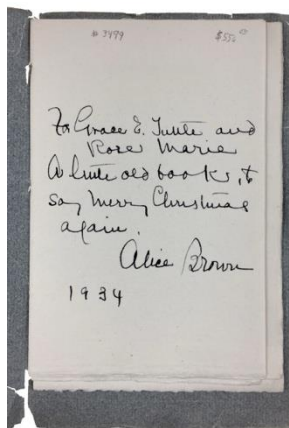 # 3499 $550
To Grace E. Tuttle and
Rose Marie
A little old book, to
say Merry Christmas
again.
Alice Brown
1934